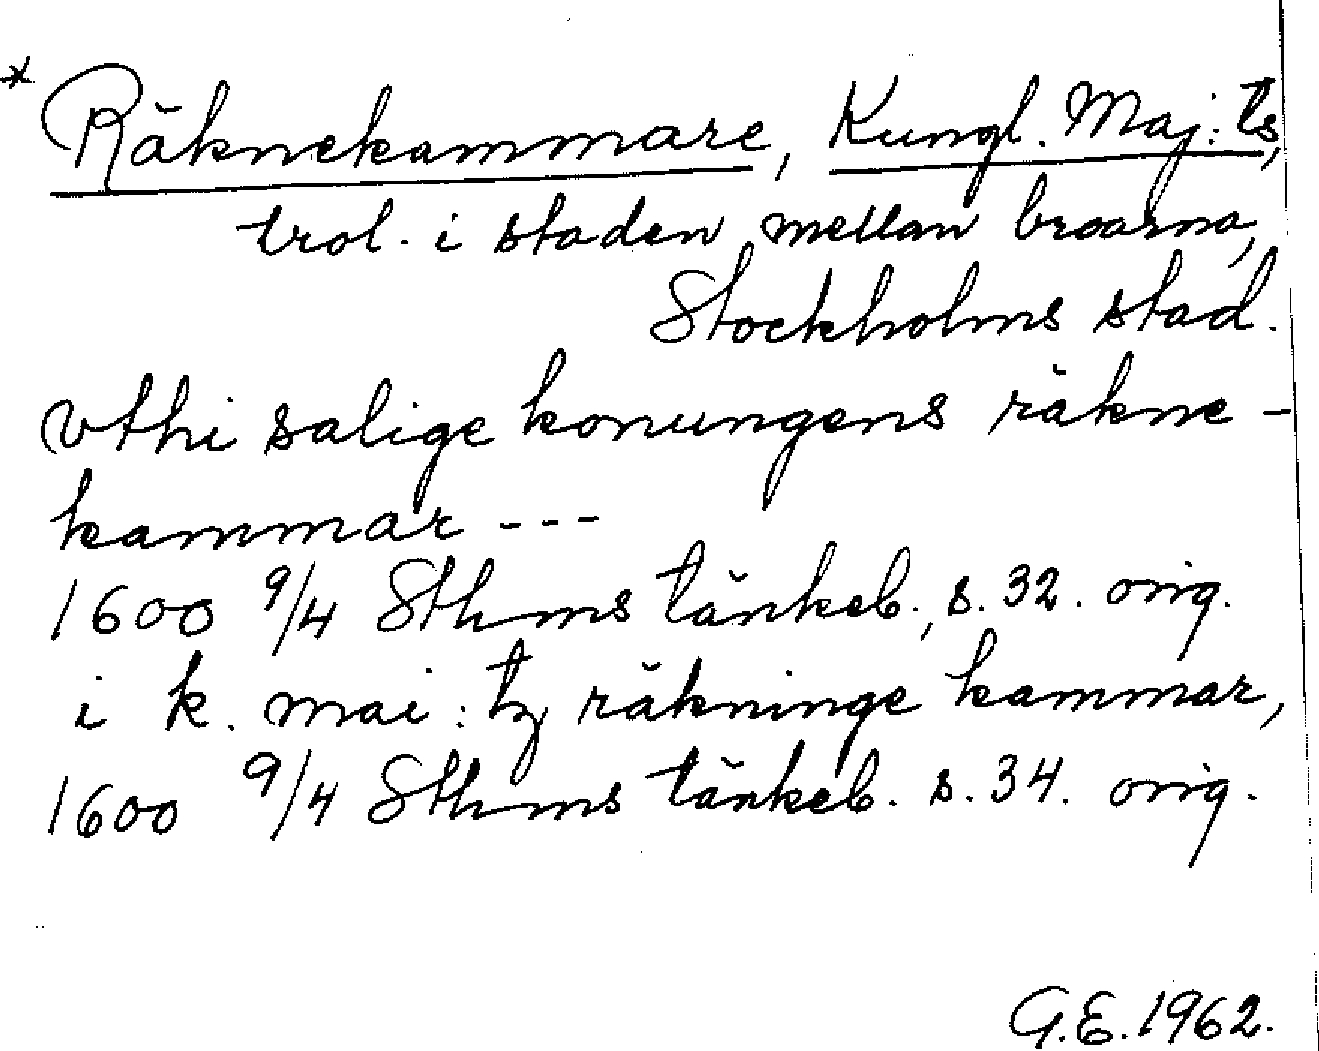 * Räknekammare, Kungl. Maj:ts,
trol. i staden mellan broarna,
Stockholms stad.
vthi salige konungens räkne-
kammar ---
1600 9/4 Sthms tänkeb., s. 32. orig.
i k. mai:tz räkninge kammar,
1600 9/4 Sthms tänkeb. s. 34. orig.
G.E. 1962.